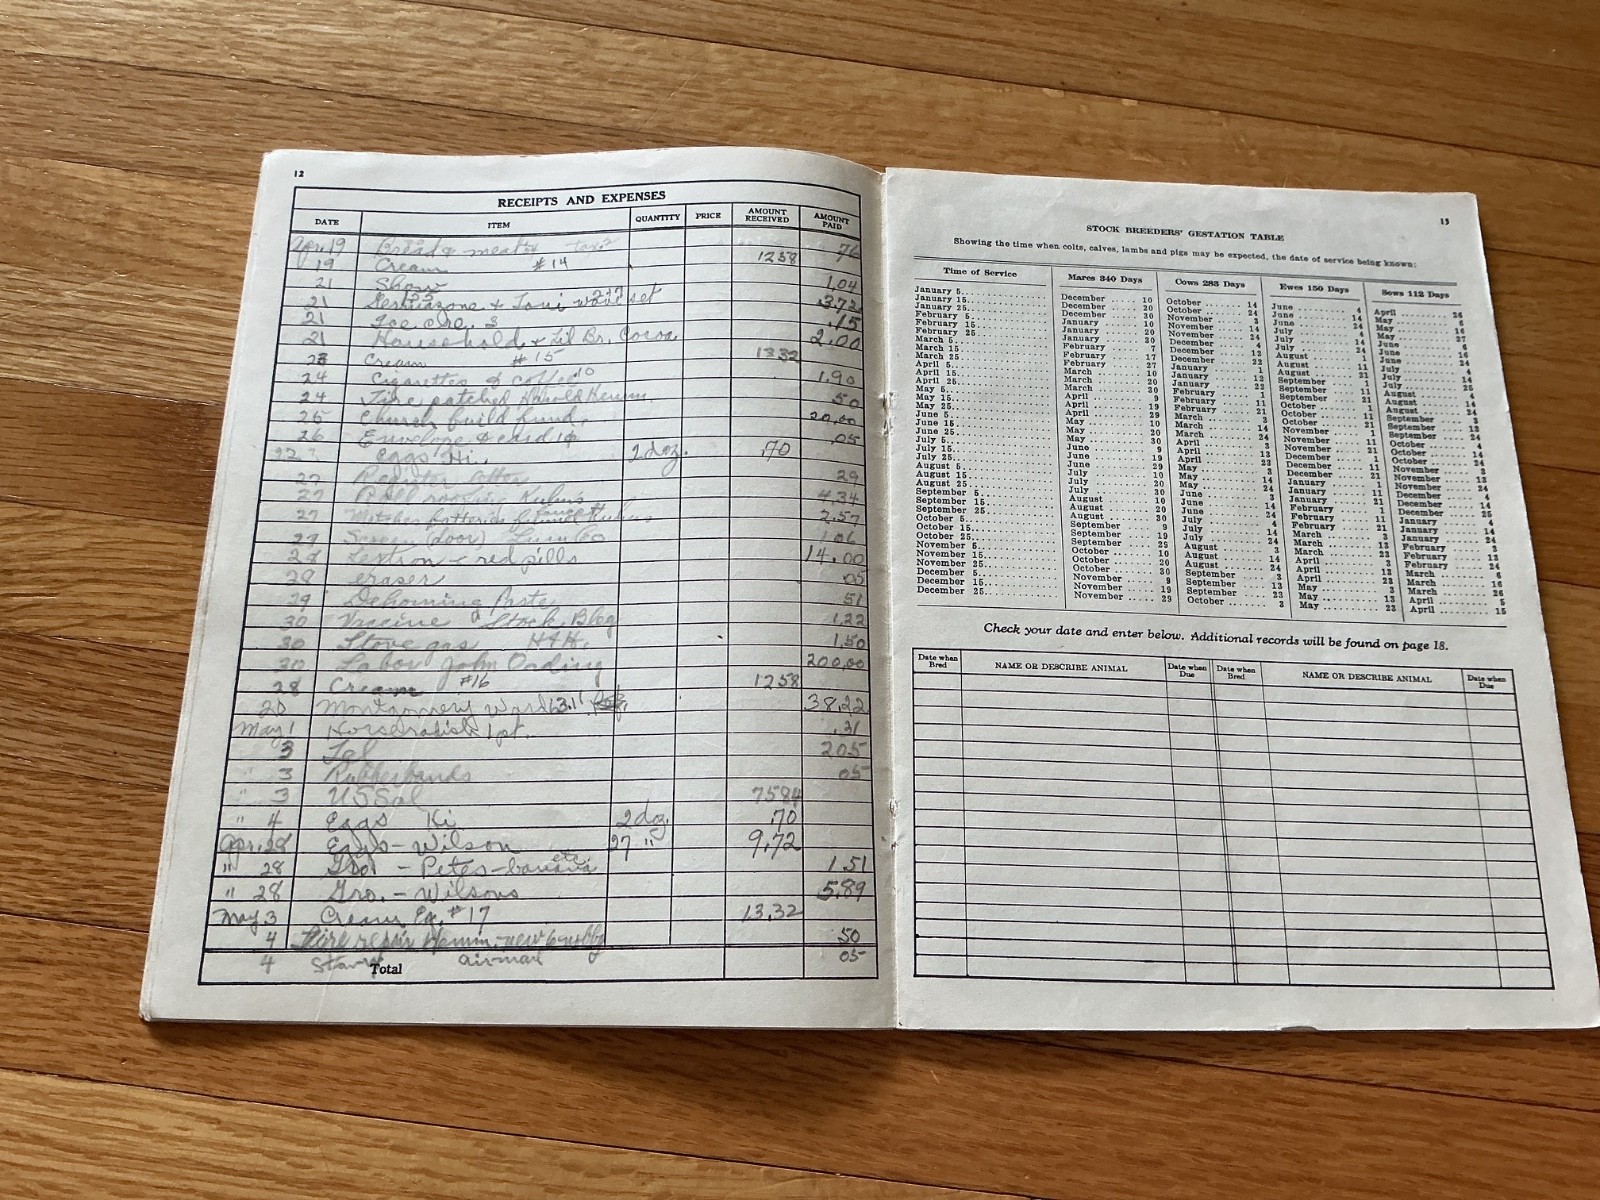 12
RECEIPTS AND EXPENSES
DATE ITEM QUANTITY PRICE AMOUNT RECEIVED AMOUNT PAID
Apr. 19 Bread & meat 76
19 Cream #14 1258
21 Show 1.04
21 & Toni wave set 3.72
21 Ice cre. 3 .15
21 Household & Lil Br. Cocoa 2.00
23 Cream #15 1332
24 Cigarettes & coffee 10 1.90
24 Tire patched Harold Hemm. 50
25 Church build fund. 20.00
26 Envelope & card 1¢ .05
22? Eggs Hi. 2 doz. .70
27 29
27 Roll roofing 4.34
27 batteries & faucet 2.57
27 Screen (door) 1.06
27 - red pills 14.00
28 eraser .05
29 Dehorning Paste 51
30 Vaccine Stock Bleg 1.22
30 Stove gas H&H. 1.50
30 Labor John Ording 200.00
28 Cream #16 1258
20 Montgomery Ward 38.22
May 1 Horseradish 1 pt. .31
3 Tel 205
" 3 Rubberbands 05
" 3 US Sal 7584
" 4 Eggs Ki 2 doz. .70
Apr. 28 Eggs - Wilson 27 " 9.72
" 28 Gro. - Petes - banana etc. 1.51
" 28 Gro. - Wilsons 5.89
May 3 Cream #17 13.32
4 Tire repair Hemm. - new 50
4 Stamp Total airmail 05
13
STOCK BREEDERS' GESTATION TABLE
Showing the time when colts, calves, lambs and pigs may be expected, the date of service being known:
Time of Service Mares 340 Days Cows 283 Days Ewes 150 Days Sows 112 Days
January 5 December 10 October 14 June 4 April 26
January 15 December 20 October 24 June 14 May 6
January 25 December 30 November 3 June 24 May 16
February 5 January 10 November 14 July 4 May 27
February 15 January 20 November 24 July 14 June 6
March 5 January 30 December 4 July 24 June 16
March 15 February 7 December 12 August 1 June 24
March 25 February 17 December 22 August 11 July 4
April 5 February 27 January 1 August 21 July 14
April 15 March 10 January 12 September 1 July 25
April 25 March 20 January 22 September 11 August 4
May 5 March 30 February 1 September 21 August 14
May 15 April 9 February 11 October 1 August 24
May 25 April 19 February 21 October 11 September 3
June 5 April 29 March 2 October 21 September 13
June 15 May 10 March 14 November 1 September 24
June 25 May 20 March 24 November 11 October 4
July 5 May 30 April 3 November 21 October 14
July 15 June 9 April 13 December 1 October 24
July 25 June 19 April 23 December 11 November 3
August 5 June 29 May 3 December 21 November 13
August 15 July 10 May 14 January 1 November 24
August 25 July 20 May 24 January 11 December 4
September 5 July 30 June 3 January 21 December 14
September 15 August 10 June 14 February 1 December 25
September 25 August 20 June 24 February 11 January 4
October 5 August 30 July 4 February 21 January 14
October 15 September 9 July 14 March 3 January 24
October 25 September 19 July 24 March 13 February 3
November 5 September 25 August 3 March 23 February 13
November 15 October 10 August 14 April 3 February 24
November 25 October 20 August 24 April 13 March 6
December 5 October 30 September 3 April 23 March 16
December 15 November 9 September 13 May 3 March 26
December 25 November 19 September 23 May 13 April 5
November 29 October 3 May 23 April 15
Check your date and enter below. Additional records will be found on page 18.
Date when Bred NAME OR DESCRIBE ANIMAL Date when Due Date when Bred NAME OR DESCRIBE ANIMAL Date when Due